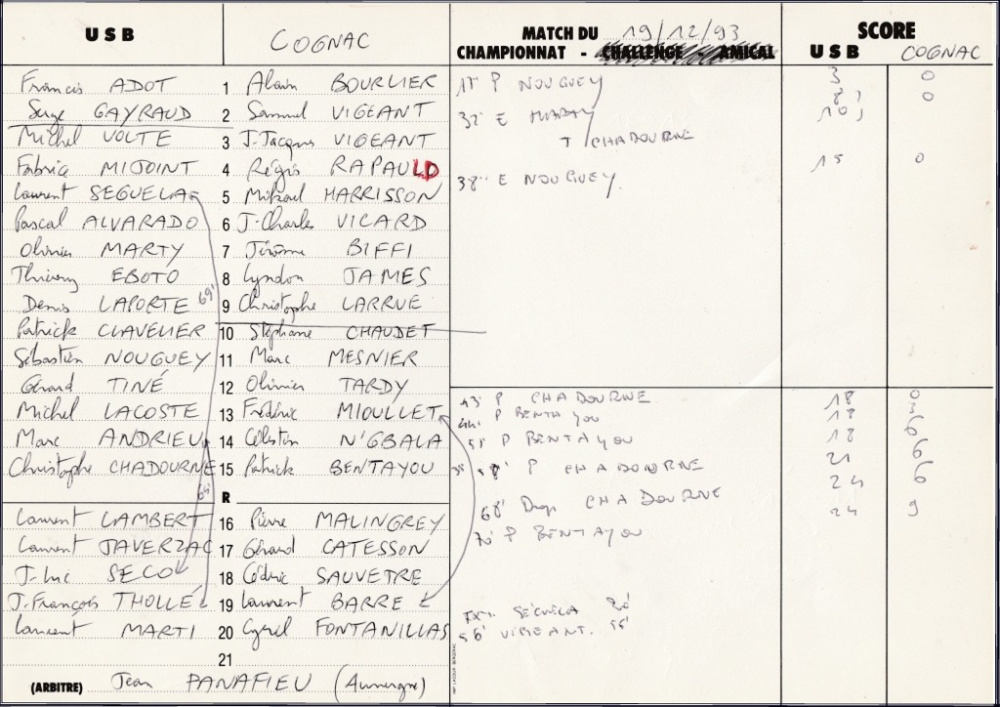 USB COGNAC MATCH DU 19/12/93 SCORE
CHAMPIONNAT - CHALLENGE AMICAL USB COGNAC
Francis ADOT 1 Alain BOURLIER 3 0
P NOUGUEY
Serge GAYRAUD 2 Samuel VIGEANT 8 0
32' E 10
Michel VOLTE 3 J.Jacques VIGEANT T CHADOURNE
Fabrice MIJOINT 4 Régis RAPAULD 15 0
Laurent SEGUELA 5 Mikael HARRISSON 38' E NOUGUEY
Pascal ALVARADO 6 J-Charles VICARD
Olivier MARTY 7 Jérôme BIFFI
Thierry EBOTO 8 Lyndon JAMES
Denis LAPORTE 69' 9 Christophe LARRUE
Patrick CLAVELIER 10 Stéphane CHAUDET
Sébastien NOUGUEY 11 Marc MESNIER
Gérard TINÉ 12 Olivier TARDY
43' P CHADOURNE 18 0
Michel LACOSTE 13 Frédéric MIOULLET P BENTAYOU 18 3
Marc ANDRIEU 14 Célestin N'GBALA P BENTAYOU 18 6
Christophe CHADOURNE 15 Patrick BENTAYOU 58' P CHADOURNE 21 6
65' R 68' Drop CHADOURNE 24 6
Laurent LAMBERT 16 Pierre MALINGREY 70' P BENTAYOU 24 9
Laurent JAVERZAC 17 Gérard CATESSON
J-Luc SECO 18 Cédric SAUVETRE
J.François THOLLÉ 19 Laurent BARRE
Laurent MARTI 20 Cyril FONTANILLAS VIGEANT.
21
(ARBITRE) Jean PANAFIEU (Auvergne)